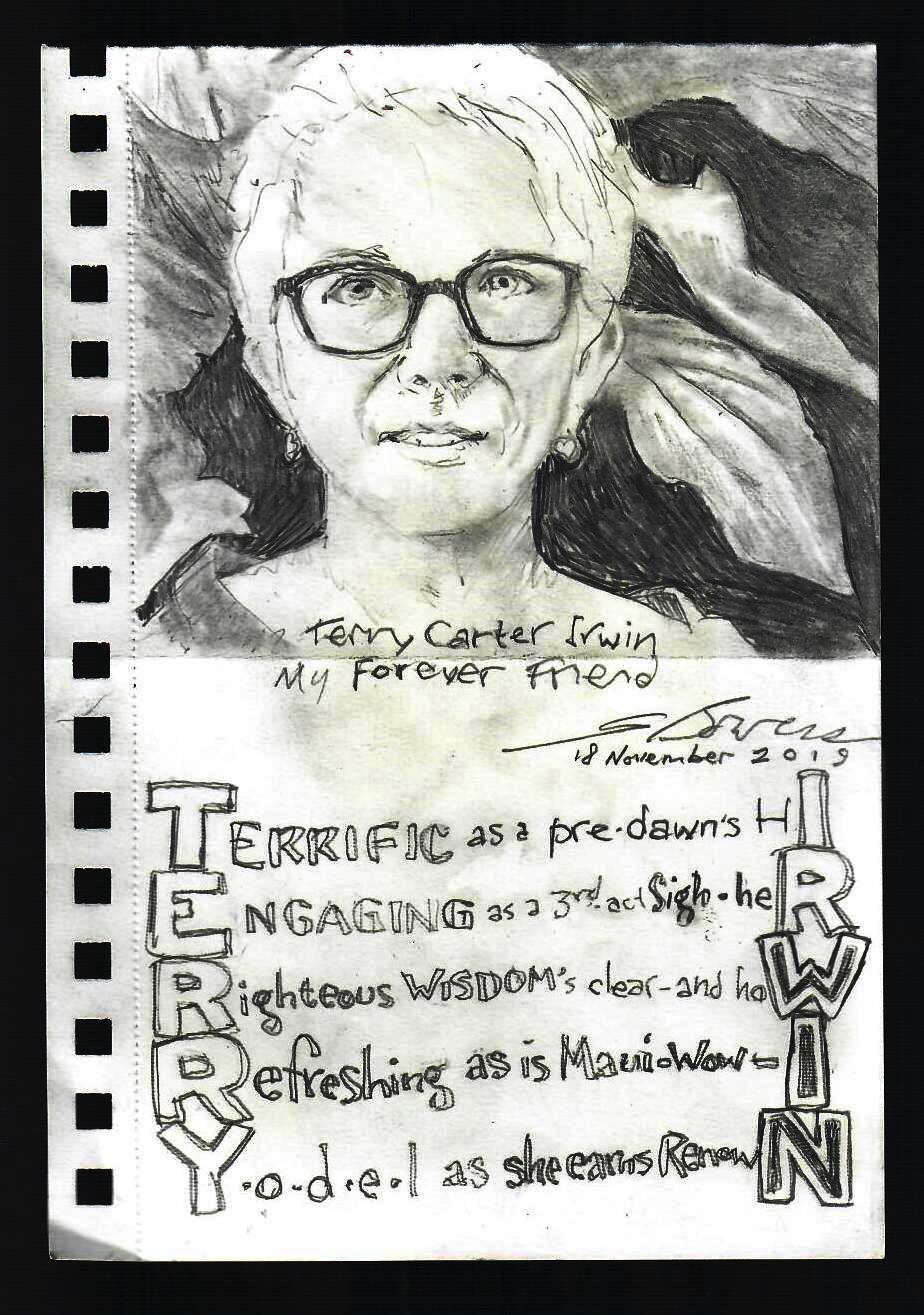 Terry Carter Irwin
My Forever Friend
S Bowers
18 November 2019
TERRIFIC as a pre-dawn's HI
ENGAGING as a 3rd-act Sigh-heR
Righteous WISDOM's clear-and hoW
Refreshing as is Maui-Wow-I
Y.o-d.e.l as she earns RenowN